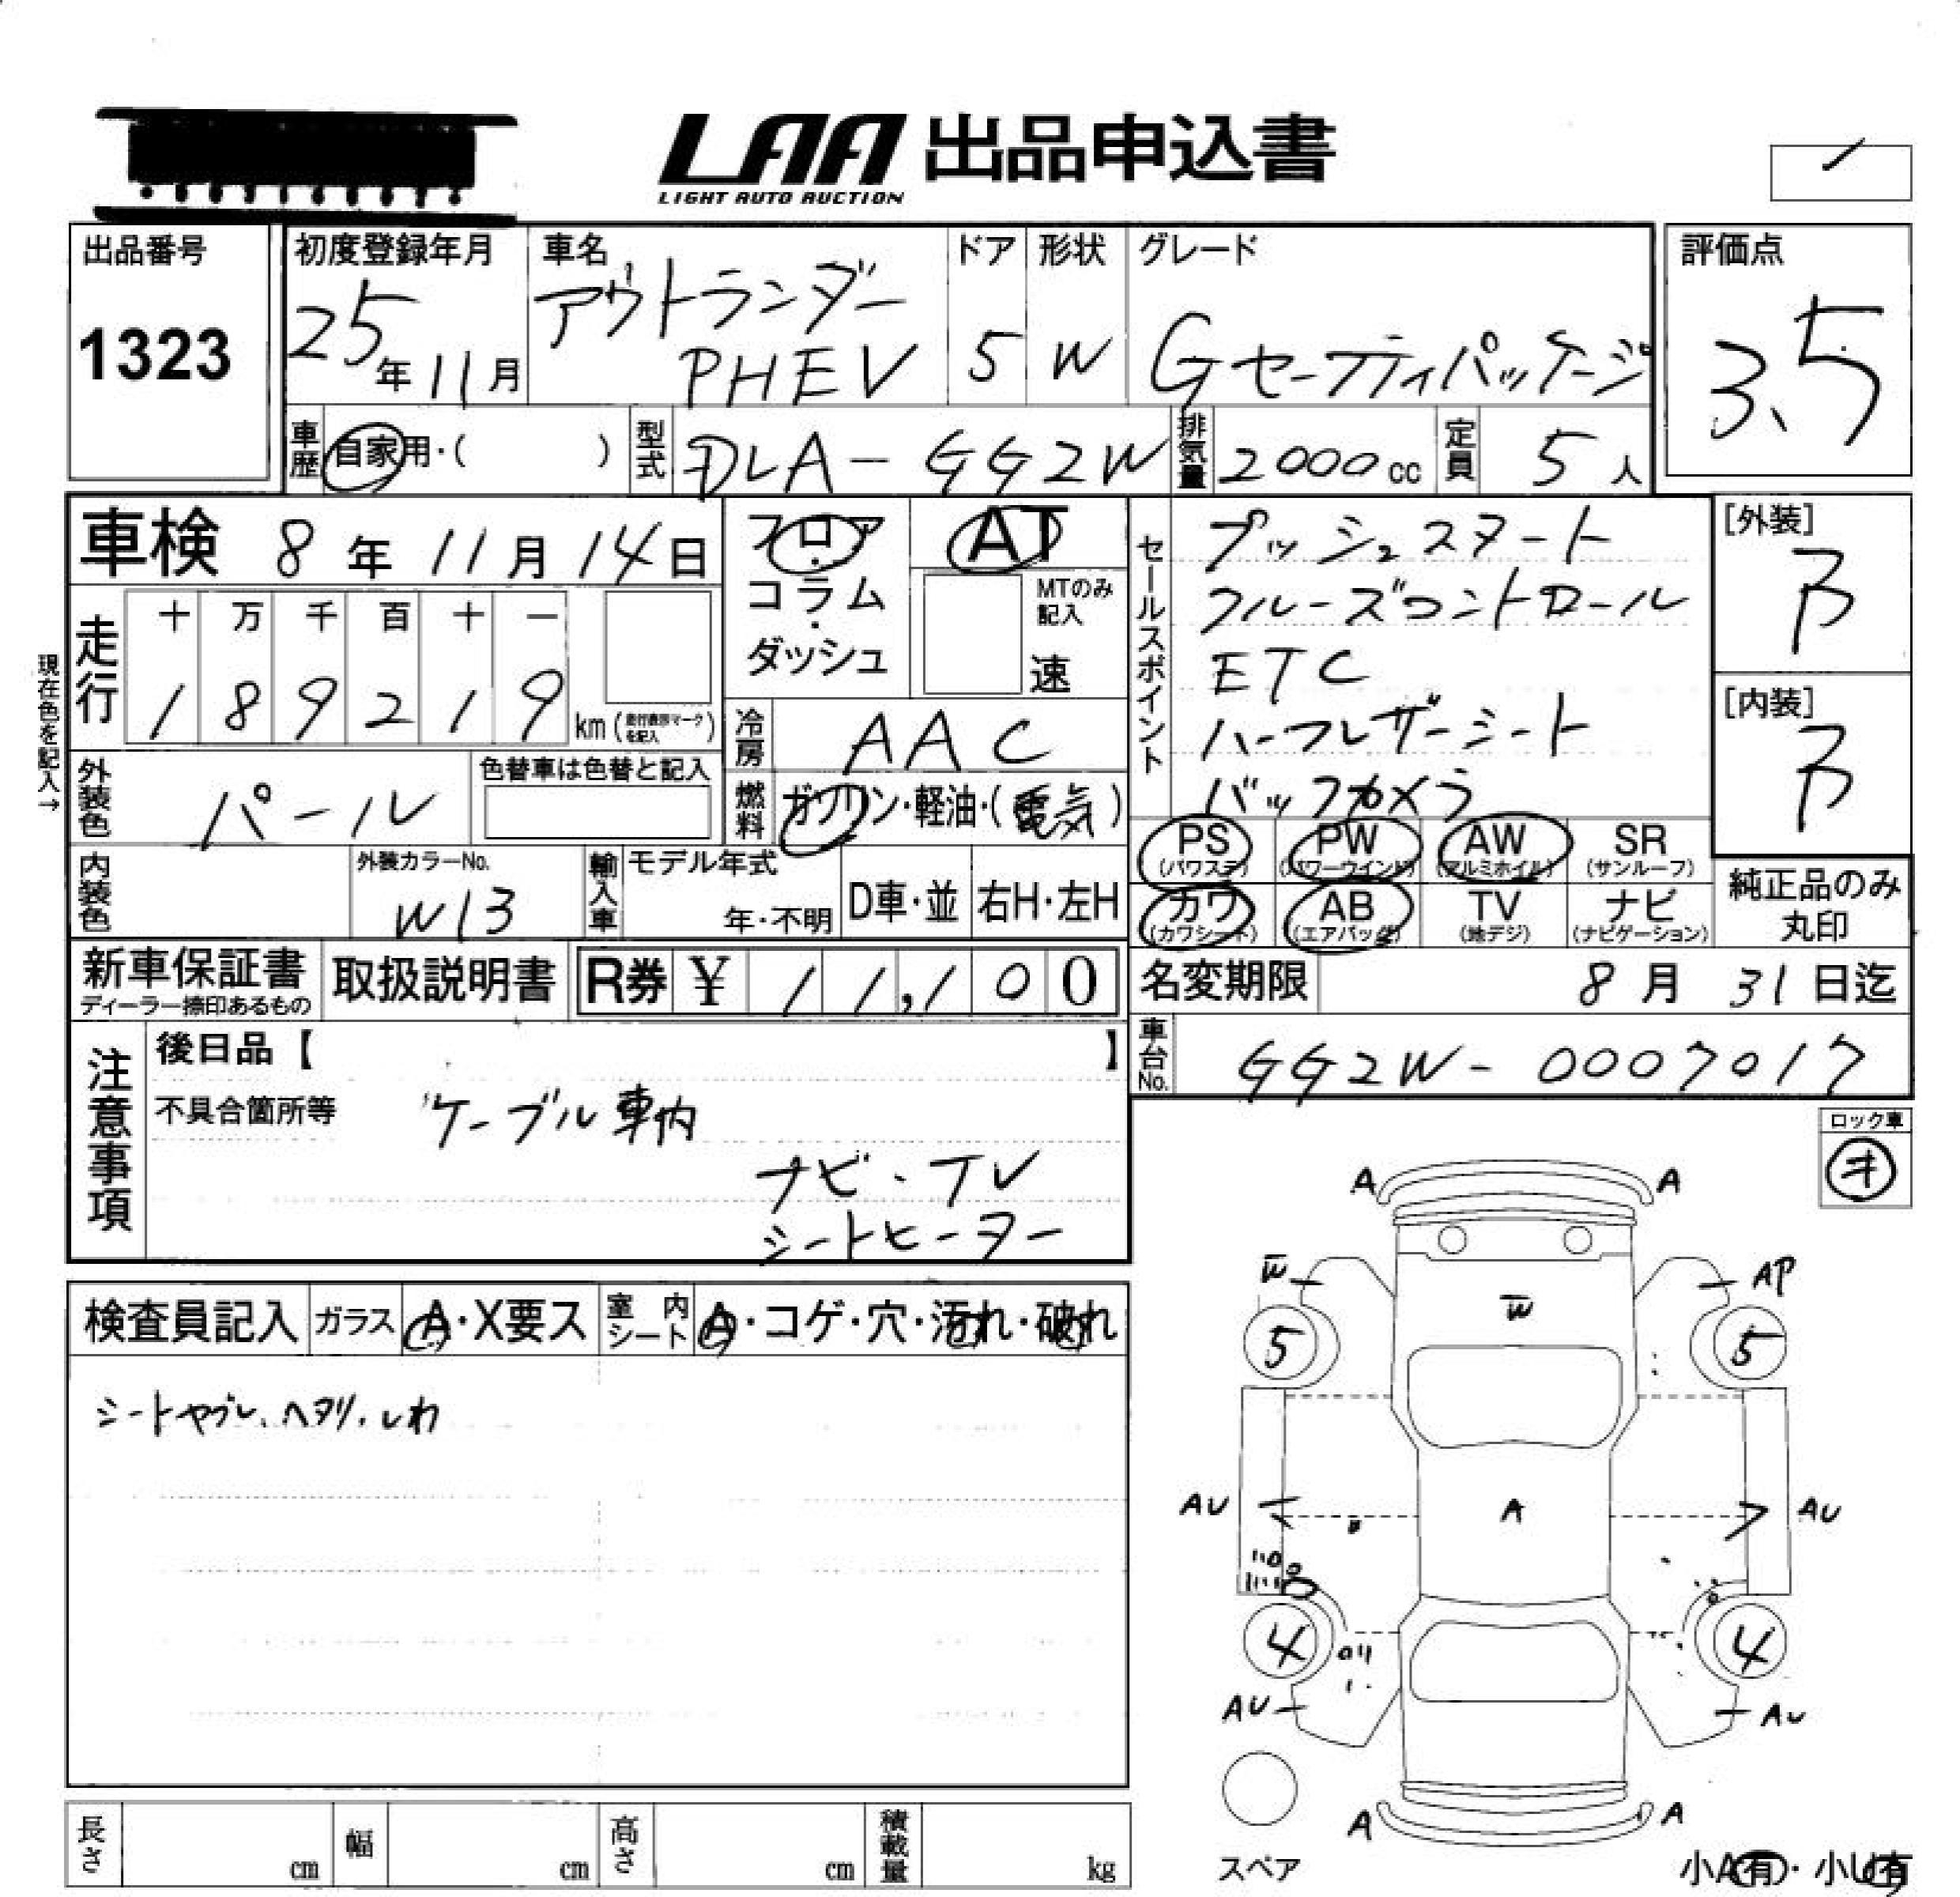 LAA 出品申込書
LIGHT AUTO AUCTION
出品番号
1323
初度登録年月
25年11月
車名
アウトランダー
PHEV
ドア
5
形状
W
グレード
Gセーフティパッケージ
評価点
3.5
車歴
自家用・( )
型式
DLA-GG2W
排気量
2000cc
定員
5人
車検 8年11月14日
フロア・コラム・ダッシュ
AT
MTのみ記入
速
セールスポイント
プッシュスタート
クルーズコントロール
ETC
ハーフレザーシート
バックカメラ
[外装]
B
[内装]
B
現在色を記入→
走行
十 万 千 百 十 一
1 8 9 2 1 9 km (走行表示マークを記入)
冷房
AAC
外装色
パール
色替車は色替と記入
燃料
ガソリン・軽油・(電気)
PS (パワステ)
PW (パワーウインド)
AW (アルミホイル)
SR (サンルーフ)
カワ (カワシート)
AB (エアバッグ)
TV (地デジ)
ナビ (ナビゲーション)
純正品のみ丸印
内装色
外装カラーNo.
W13
輸入車
モデル年式
年・不明
D車・並
右H・左H
新車保証書
ディーラー捺印あるもの
取扱説明書
R券 ¥ 11,100
名変期限 8月31日迄
車台No.
GG2W-0007017
注意事項
後日品【 】
不具合箇所等 ケーブル車内
ナビ・TV
シートヒーター
ロック車
キ
検査員記入
ガラス
A・X要ス
室内シート
A・コゲ・穴・汚れ・破れ
シートヤブレ、ヘタリ、しわ
A A
W AP
W
5 5
AU A AU
4 4
AU AU
A A
スペア
小A有・小U有
長さ cm
幅 cm
高さ cm
積載量 kg